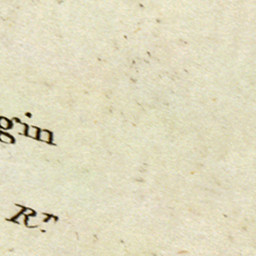 gin
R.r